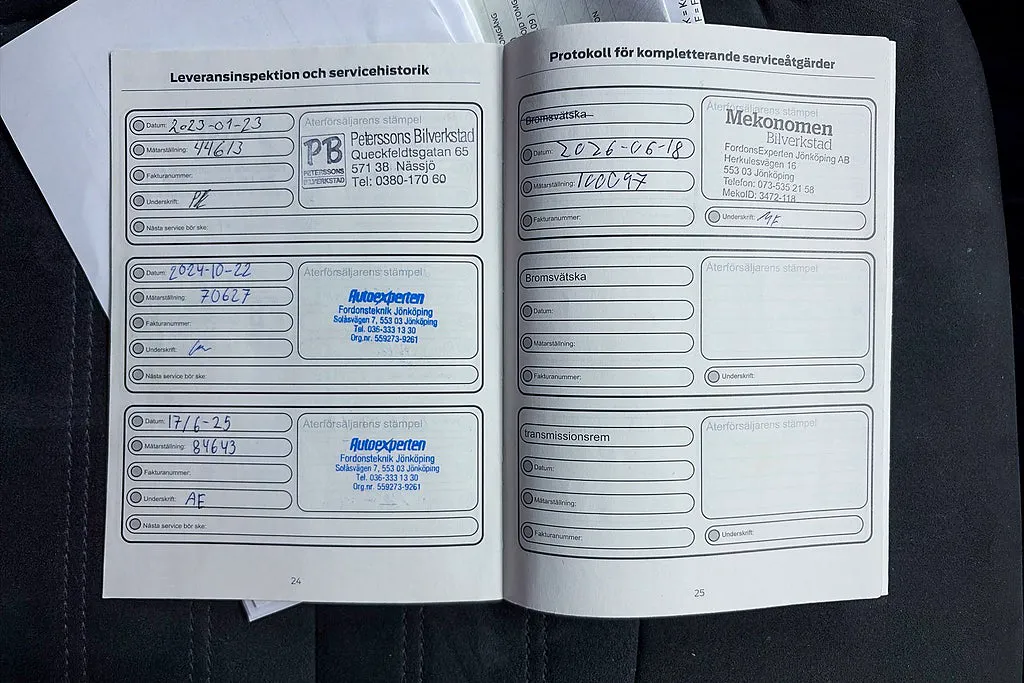 Leveransinspektion och servicehistorik
Datum: 2023-01-23
Mätarställning: 44613
Fakturanummer:
Underskrift:
Nästa service bör ske:
Återförsäljarens stämpel
PB
PETERSSONS
BILVERKSTAD
Peterssons Bilverkstad
Queckfeldtsgatan 65
571 38 Nässjö
Tel: 0380-170 60
Datum: 2024-10-22
Mätarställning: 70627
Fakturanummer:
Underskrift:
Nästa service bör ske:
Återförsäljarens stämpel
Autoexperten
Fordonsteknik Jönköping
Solåsvägen 7, 553 03 Jönköping
Tel. 036-333 13 30
Org.nr. 559273-9261
Datum: 17/6-25
Mätarställning: 84643
Fakturanummer:
Underskrift: AE
Nästa service bör ske:
Återförsäljarens stämpel
Autoexperten
Fordonsteknik Jönköping
Solåsvägen 7, 553 03 Jönköping
Tel. 036-333 13 30
Org.nr. 559273-9261
24
Protokoll för kompletterande serviceåtgärder
Bromsvätska
Datum: 2026-06-18
Mätarställning: 100097
Fakturanummer:
Återförsäljarens stämpel
Mekonomen
Bilverkstad
FordonsExperten Jönköping AB
Herkulesvägen 16
553 03 Jönköping
Telefon: 073-535 21 58
MekoID: 3472-118
Underskrift: MF
Bromsvätska
Datum:
Mätarställning:
Fakturanummer:
Återförsäljarens stämpel
Underskrift:
transmissionsrem
Datum:
Mätarställning:
Fakturanummer:
Återförsäljarens stämpel
Underskrift:
25